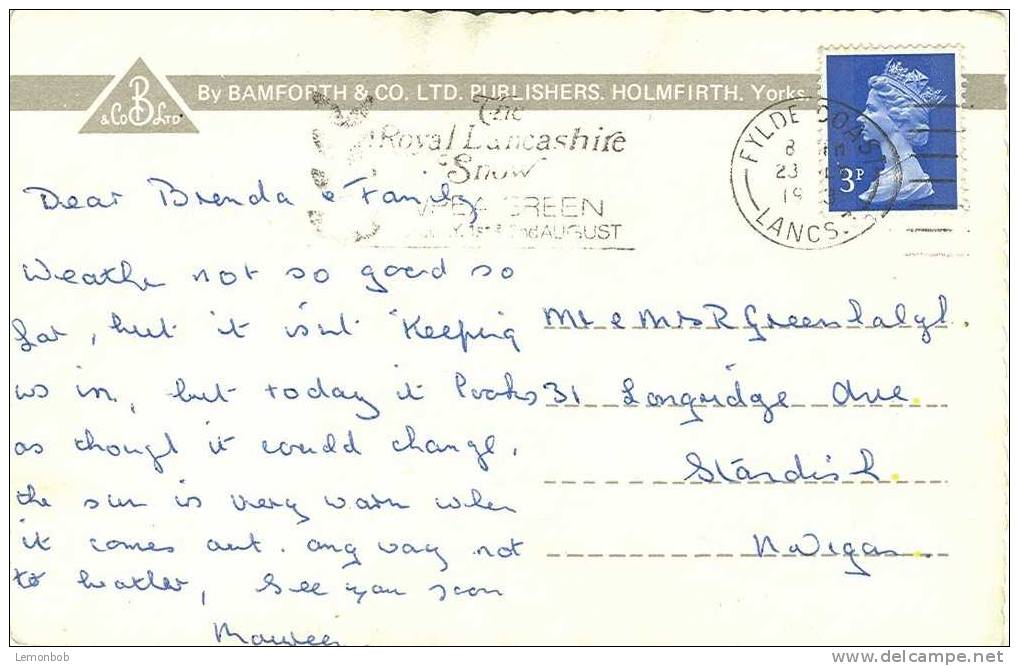 B
& Co LTD
By BAMFORTH & CO. LTD. PUBLISHERS. HOLMFIRTH, Yorks.
The
Royal Lancashire
Show
GREEN
1st & 2nd AUGUST
FYLDE COAST
23
19
LANCS.
3P
Dear Brenda & Family
Weather not so good so
far, but it isnt keeping
us in, but today it looks
as thougt it could change,
the sun is very warm when
it comes out. any way not
to
See you soon
Maureen
Mr & Mrs R Greenhalgh.
31 Longridge Ave.
Standish.
N Wigan.
Lemonbob
www.delcampe.net